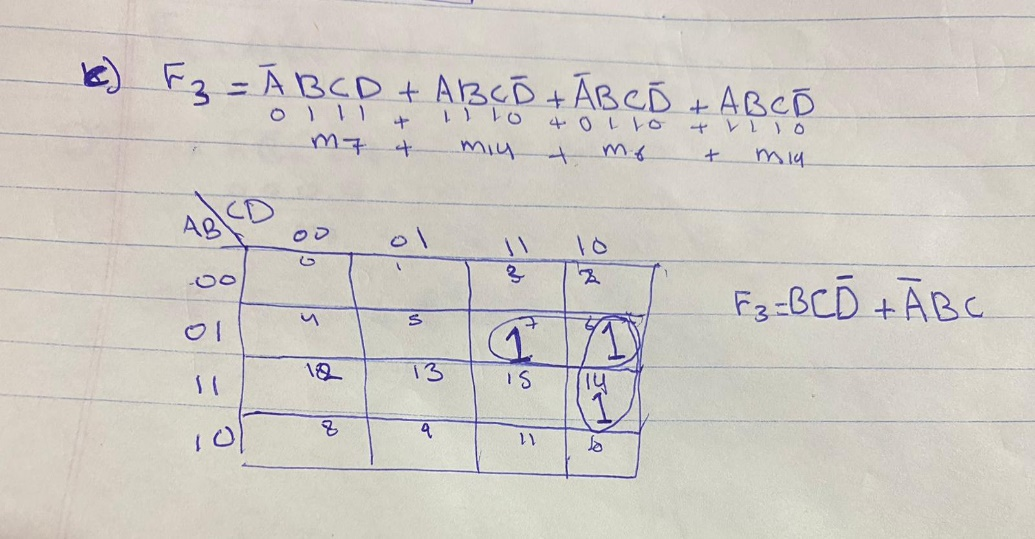 c) F3 = A̅BCD + ABCD̅ + A̅BCD̅ + ABCD̅
0 1 1 1 + 1 1 1 0 + 0 1 1 0 + 1 1 1 0
m7 + m14 + m6 + m14
AB CD 00 01 11 10
00 0 1 3 2
01 4 5 1 7 6 1
11 12 13 15 14 1
10 8 9 11 10
F3 = BCD̅ + A̅BC